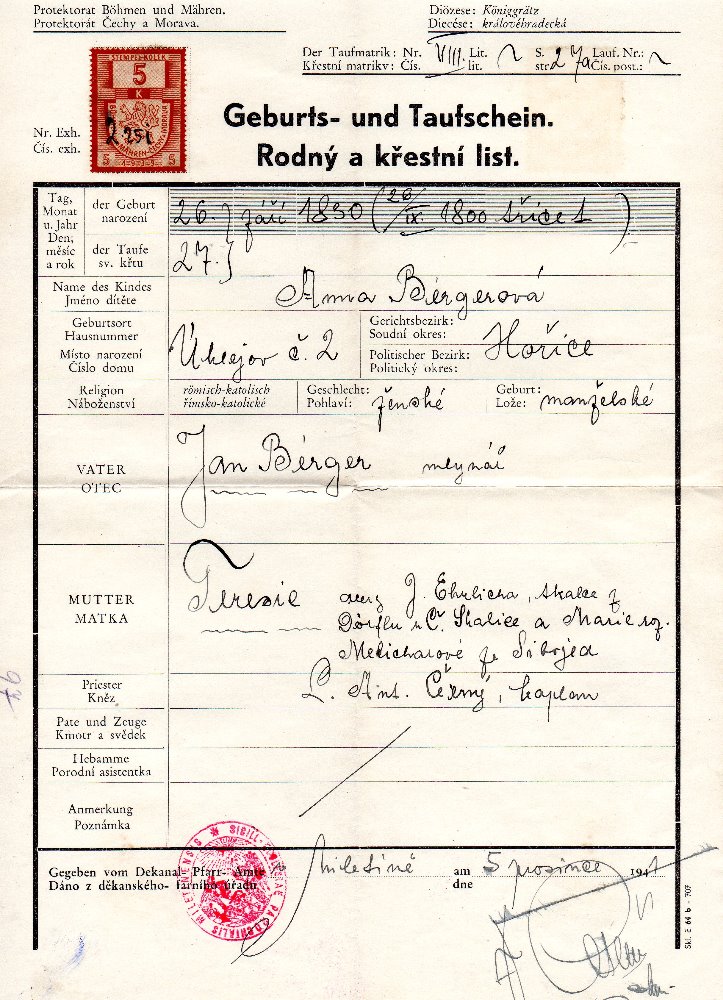 Protektorat Böhmen und Mähren.
Protektorát Čechy a Morava.
Diözese: Königgrätz
Diecése: královéhradecká
Der Taufmatrik: Nr. VIII. Lit. S. 27a Lauf. Nr.:
Křestní matriky: Čís. lit. str. Čís. post.:
STEMPEL-KOLEK
5
K
5 5
Nr. Exh.
Čís. exh.
Geburts- und Taufschein.
Rodný a křestní list.
Tag, Monat u. Jahr
Den, měsíc a rok
der Geburt
narození
26. září 1830 (26/IX. 1800 třicet)
der Taufe
sv. křtu
27.
Name des Kindes
Jméno dítěte
Anna Bergerová
Geburtsort
Hausnummer
Místo narození
Číslo domu
Úhlejov č. 2
Gerichtsbezirk:
Soudní okres:
Politischer Bezirk:
Politický okres:
Hořice
Religion
Náboženství
römisch-katolisch
římsko-katolické
Geschlecht:
Pohlaví: ženské
Geburt:
Lože: manželské
VATER
OTEC
Jan Berger mlynář
MUTTER
MATKA
Terezie dcery J. Ehrlicha, skalce z
Dörflu u Č. Skalice a Marie roz.
Melicharové ze
Priester
Kněz
P. Ant. Černý, kaplan
Pate und Zeuge
Kmotr a svědek
Hebamme
Porodní asistentka
Anmerkung
Poznámka
Gegeben vom Dekanal- Pfarr- Amte
Dáno z děkanského- farního úřadu
Miletíně
am
dne
5 prosince 1941
Skl. E 64 b - 707